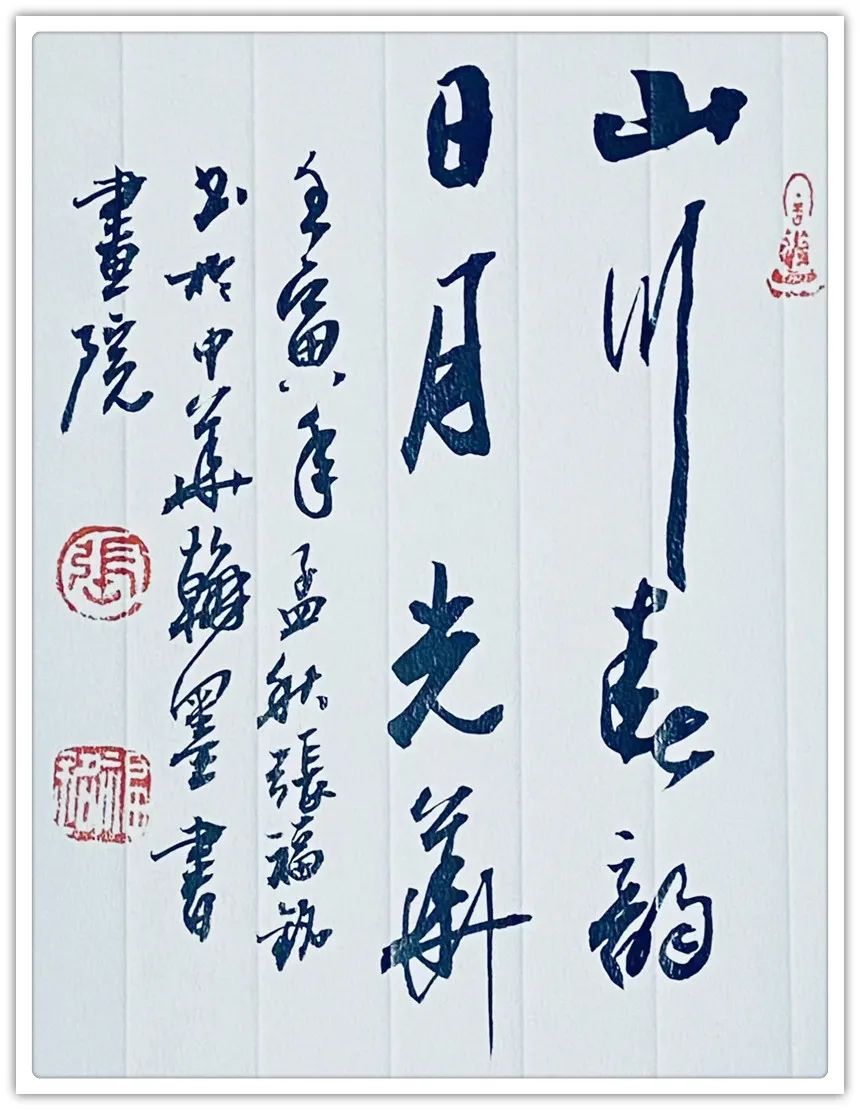 山川春韵
日月光華
壬寅年孟秋張福銘
书於中華翰墨書
畫院
張